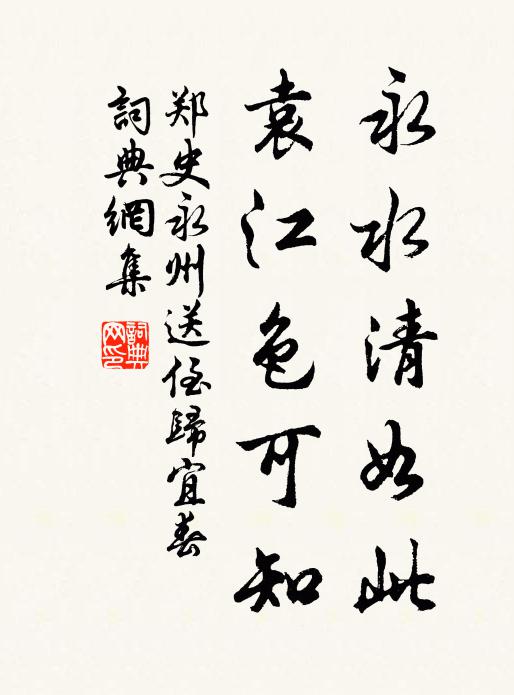 永水清如此
袁江色可知
郑史永州送侄歸宜春
詞典網集
詞典網印